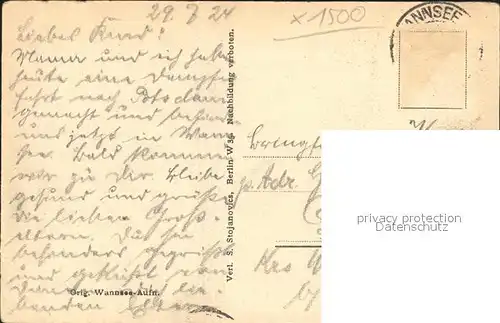 29. 7. 24
Liebes Kind!
Mama und ich haben
heute eine Dampfer
fahrt nach Potsdam
gemacht und befinden
uns jetzt in Wann
see. Bald kommen
wir zu Dir. Bleibe
gesund und grüße
die lieben Groß-
eltern. Du sei
besonders gegrüßt
und geküßt von
Orig. Wannsee-Aufn.
Verl. S. Stojanovics, Berlin W 35. Nachbildung verboten.
x 1500
WANNSEE
p. Adr.
privacy protection
Datenschutz